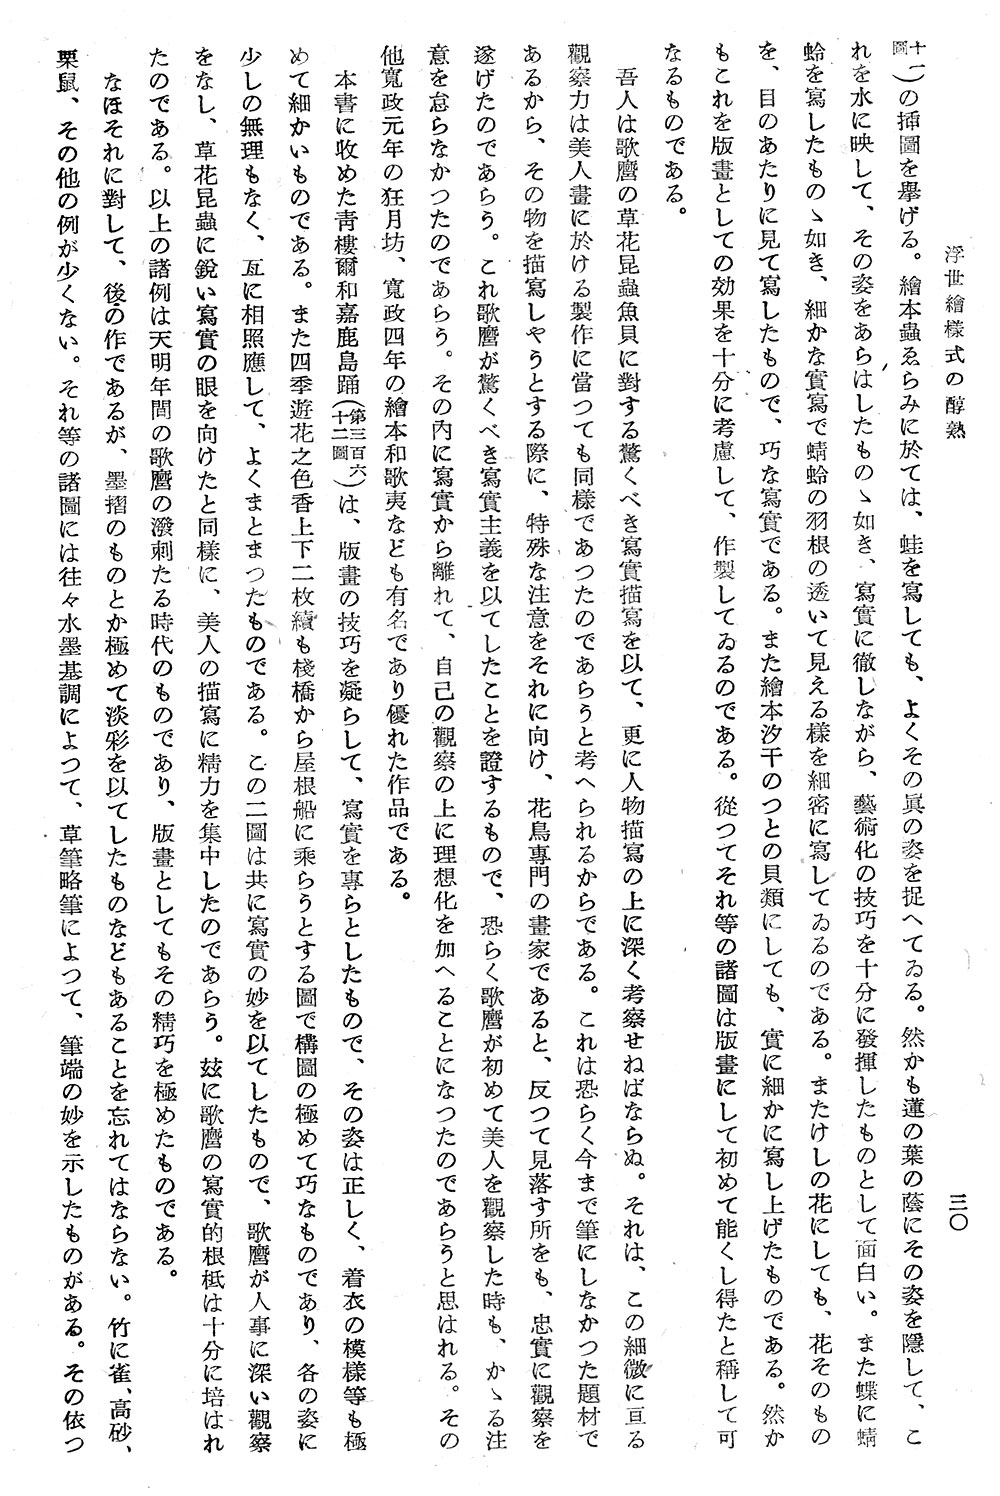 浮世繪樣式の醇熟
三〇
十一圖)の挿圖を擧げる。繪本蟲ゑらみに於ては、蛙を寫しても、よくその眞の姿を捉へてゐる。然かも蓮の葉の蔭にその姿を隱して、こ
れを水に映して、その姿をあらはしたものゝ如き、寫實に徹しながら、藝術化の技巧を十分に發揮したものとして面白い。また蝶に蜻
蛉を寫したものゝ如き、細かな實寫で蜻蛉の羽根の透いて見える樣を細密に寫してゐるのである。またけしの花にしても、花そのもの
を、目のあたりに見て寫したもので、巧な寫實である。また繪本汐干のつとの貝類にしても、實に細かに寫し上げたものである。然か
もこれを版畫としての効果を十分に考慮して、作製してゐるのである。從つてそれ等の諸圖は版畫にして初めて能くし得たと稱して可
なるものである。
吾人は歌麿の草花昆蟲魚貝に對する驚くべき寫實描寫を以て、更に人物描寫の上に深く考察せねばならぬ。それは、この細微に亘る
觀察力は美人畫に於ける製作に當つても同樣であつたのであらうと考へられるからである。これは恐らく今まで筆にしなかつた題材で
あるから、その物を描寫しやうとする際に、特殊な注意をそれに向け、花鳥專門の畫家であると、反つて見落す所をも、忠實に觀察を
遂げたのであらう。これ歌麿が驚くべき寫實主義を以てしたことを證するもので、恐らく歌麿が初めて美人を觀察した時も、かゝる注
意を怠らなかつたのであらう。その內に寫實から離れて、自己の觀察の上に理想化を加へることになつたのであらうと思はれる。その
他寬政元年の狂月坊、寬政四年の繪本和歌夷なども有名であり優れた作品である。
本書に收めた靑樓爾和嘉鹿島踊(第三百六十二圖)は、版畫の技巧を凝らして、寫實を專らとしたもので、その姿は正しく、着衣の模樣等も極
めて細かいものである。また四季遊花之色香上下二枚續も棧橋から屋根船に乘らうとする圖で構圖の極めて巧なものであり、各の姿に
少しの無理もなく、互に相照應して、よくまとまつたものである。この二圖は共に寫實の妙を以てしたもので、歌麿が人事に深い觀察
をなし、草花昆蟲に銳い寫實の眼を向けたと同樣に、美人の描寫に精力を集中したのであらう。玆に歌麿の寫實的根柢は十分に培はれ
たのである。以上の諸例は天明年間の歌麿の潑剌たる時代のものであり、版畫としてもその精巧を極めたものである。
なほそれに對して、後の作であるが、墨摺のものとか極めて淡彩を以てしたものなどもあることを忘れてはならない。竹に雀、高砂、
栗鼠、その他の例が少くない。それ等の諸圖には往々水墨基調によつて、草筆略筆によつて、筆端の妙を示したものがある。その依つ